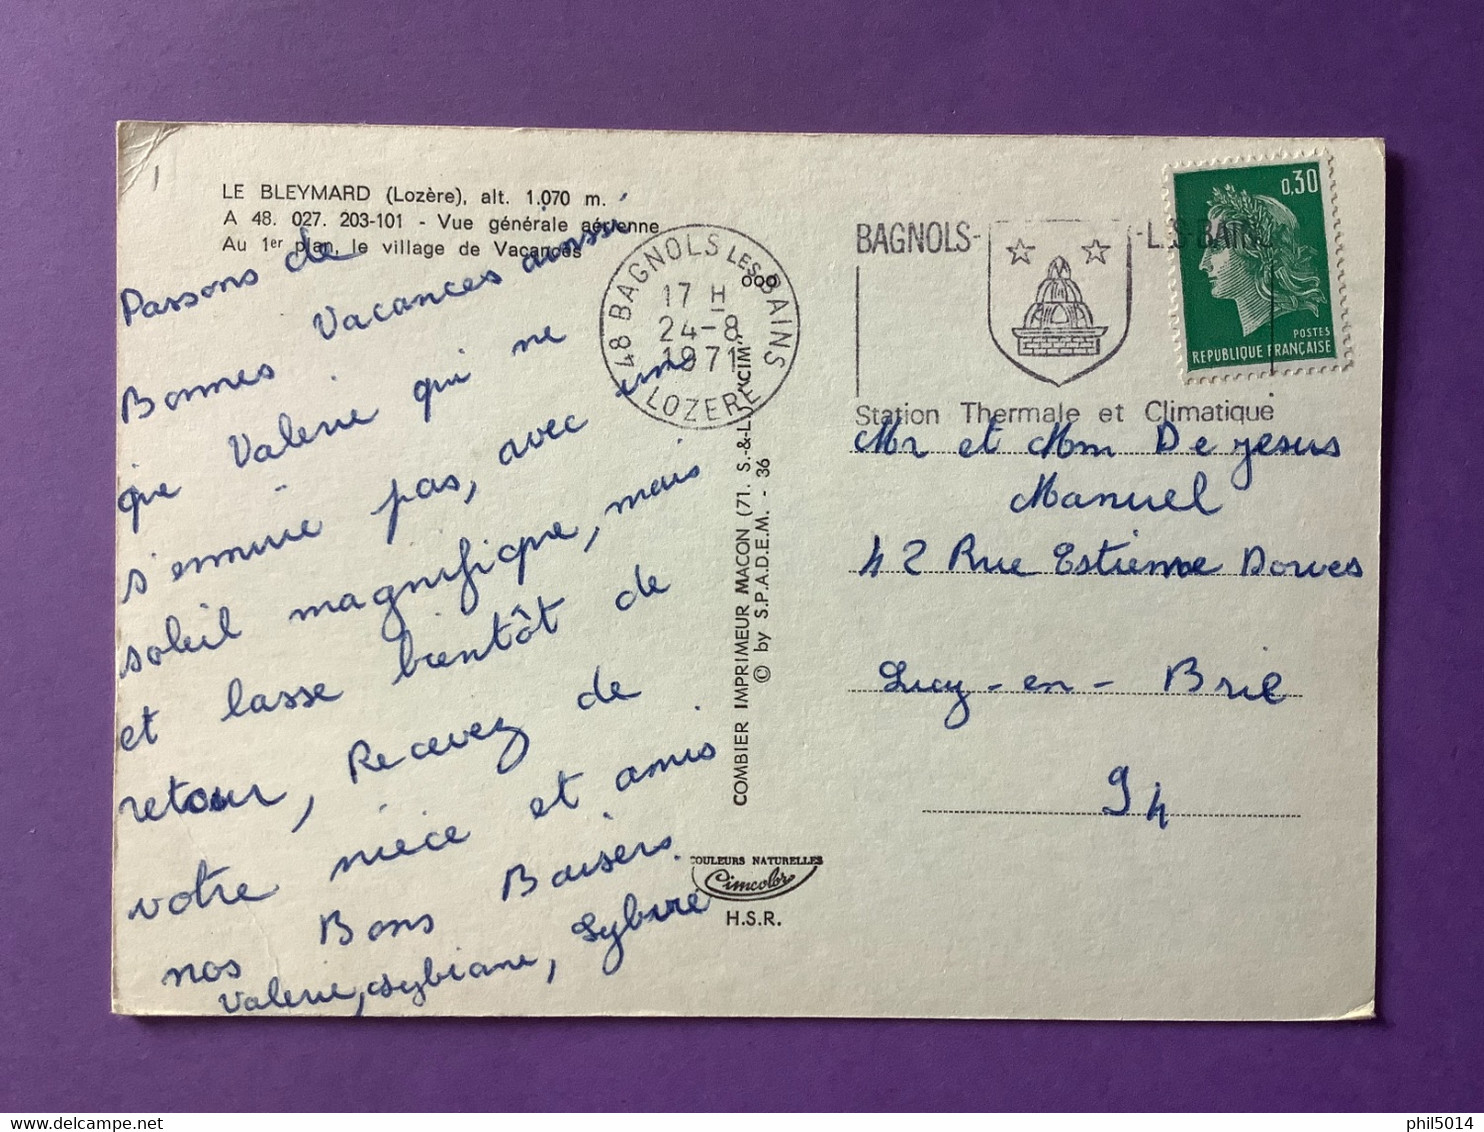 LE BLEYMARD (Lozère), alt. 1.070 m.
A 48. 027. 203-101 - Vue générale aérienne
Au 1er plan, le village de Vacances
Passons de
Bonnes Vacances ainsi
que Valerie qui ne
s'ennuie pas, avec un
soleil magnifique, mais
et lasse bientôt de
retour, Recevez de
votre nièce et amis
nos Bons Baisers.
Valerie,
48 BAGNOLS LES BAINS
17 H
24-8
1971
LOZERE
COMBIER IMPRIMEUR MACON (71. S.-&-L.) "CIM"
© by S.P.A.D.E.M. - 36
COULEURS NATURELLES
Cimcolor
H.S.R.
BAGNOLS-LES-BAINS
Station Thermale et Climatique
0,30
POSTES
REPUBLIQUE FRANÇAISE
Mr et Mm De jesus
Manuel
42 Rue Estienne Dorves
Sucy-en-Brie
94
phil5014